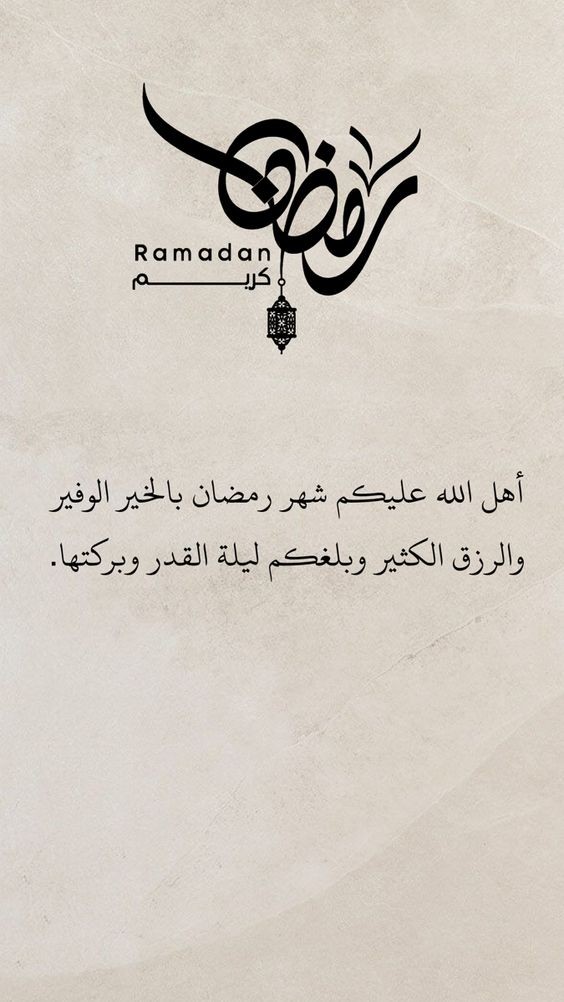 رمضان
Ramadan
كريم
أهل الله عليكم شهر رمضان بالخير الوفير
والرزق الكثير وبلغكم ليلة القدر وبركتها.